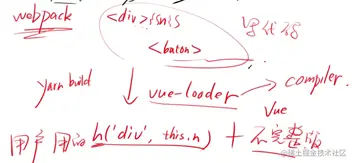 webpack
<div>{{n}}
写代码
<button>
yarn build
vue-loader → compiler
Vue
用户用的 h('div', this.n) + 不完整版
@稀土掘金技术社区